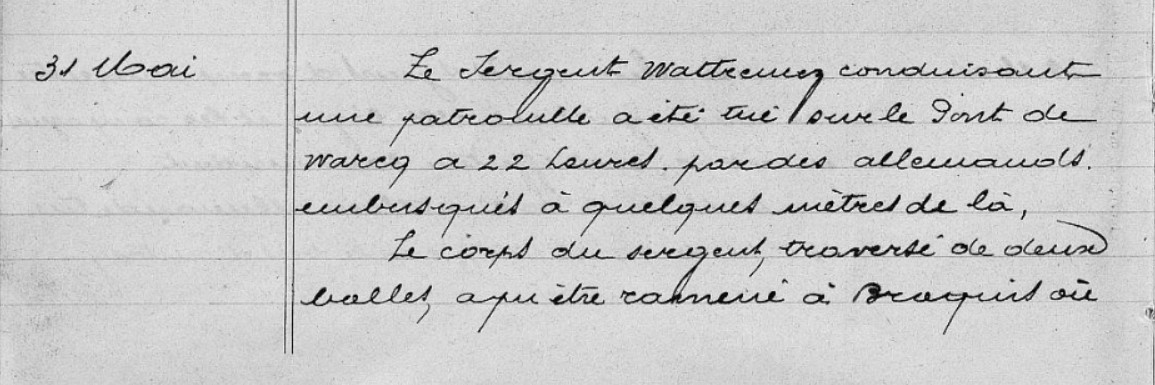 31 Mai
Le Sergent Wattremez conduisant
une patrouille a été tué sur le Pont de
Warcq a 22 heures. par des allemands.
embusqués à quelques mètres de là,
Le corps du sergent, traversé de deux
balles, a pu être ramené à Braquis où